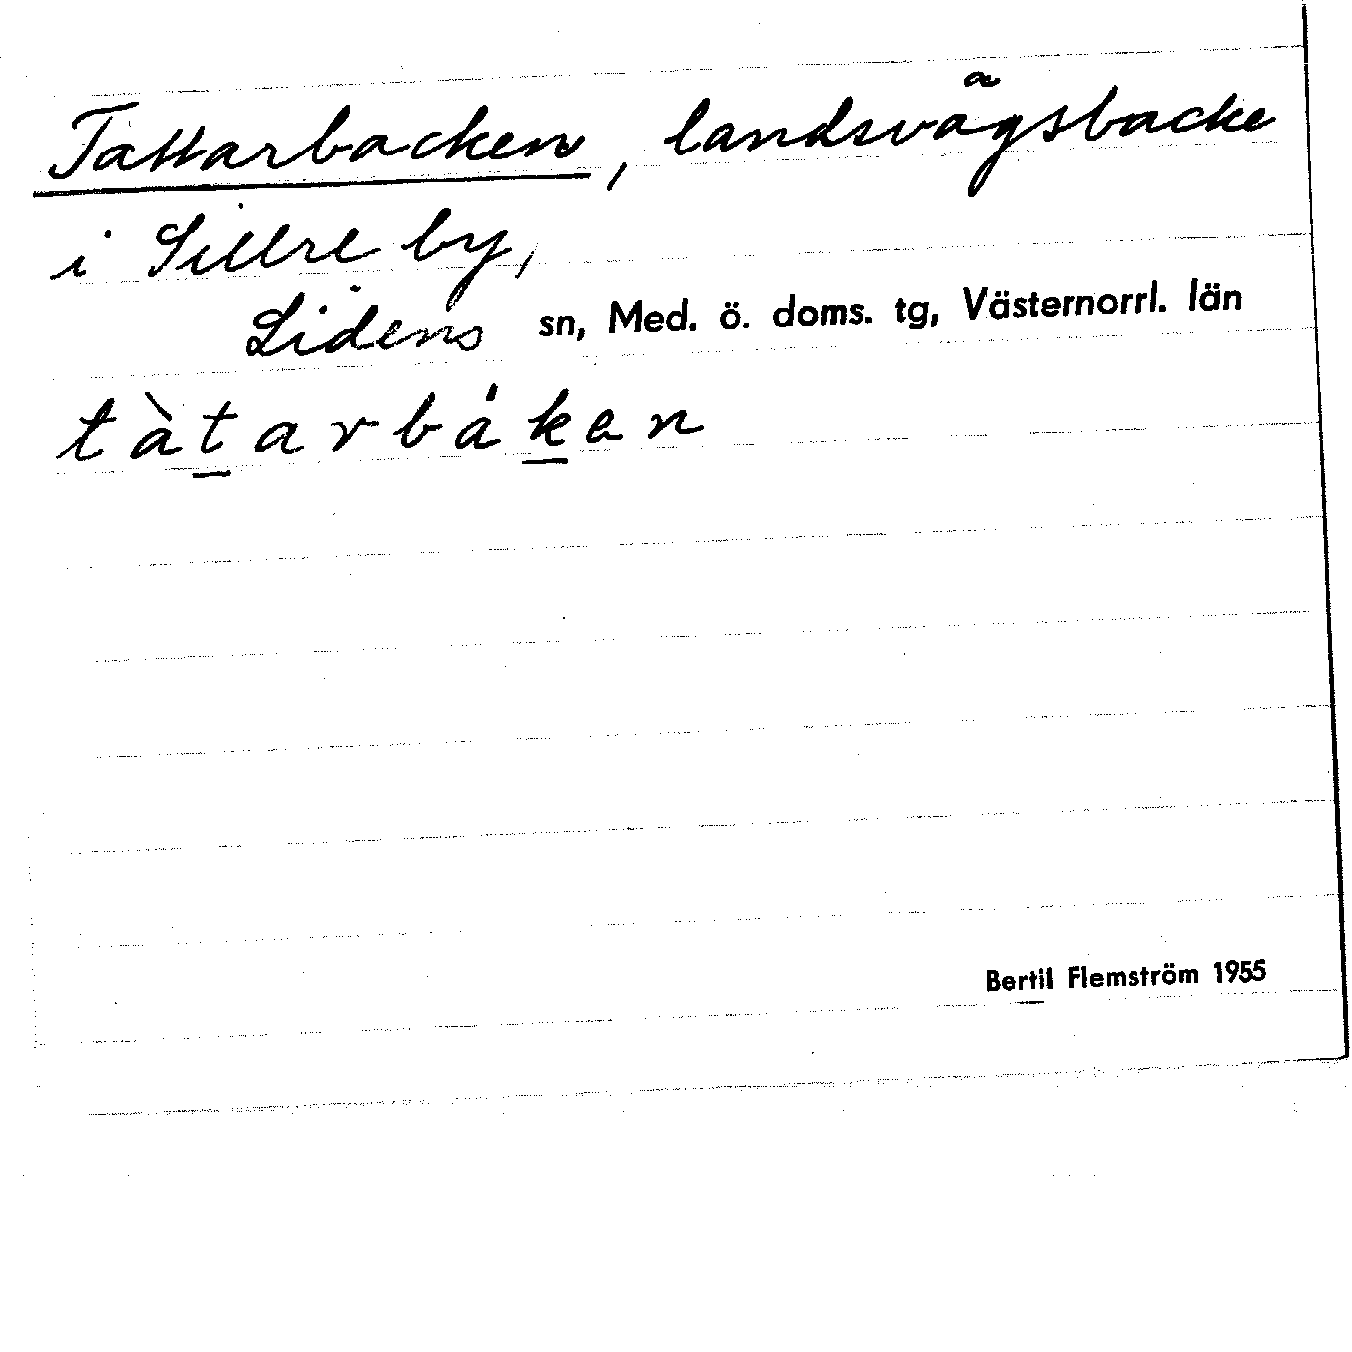 Tattarbacken, landsvägsbacke
i Sillre by,
Lidens sn, Med. ö. doms. tg, Västernorrl. län
tàt̲arbák̲en
Bertil Flemström 1955